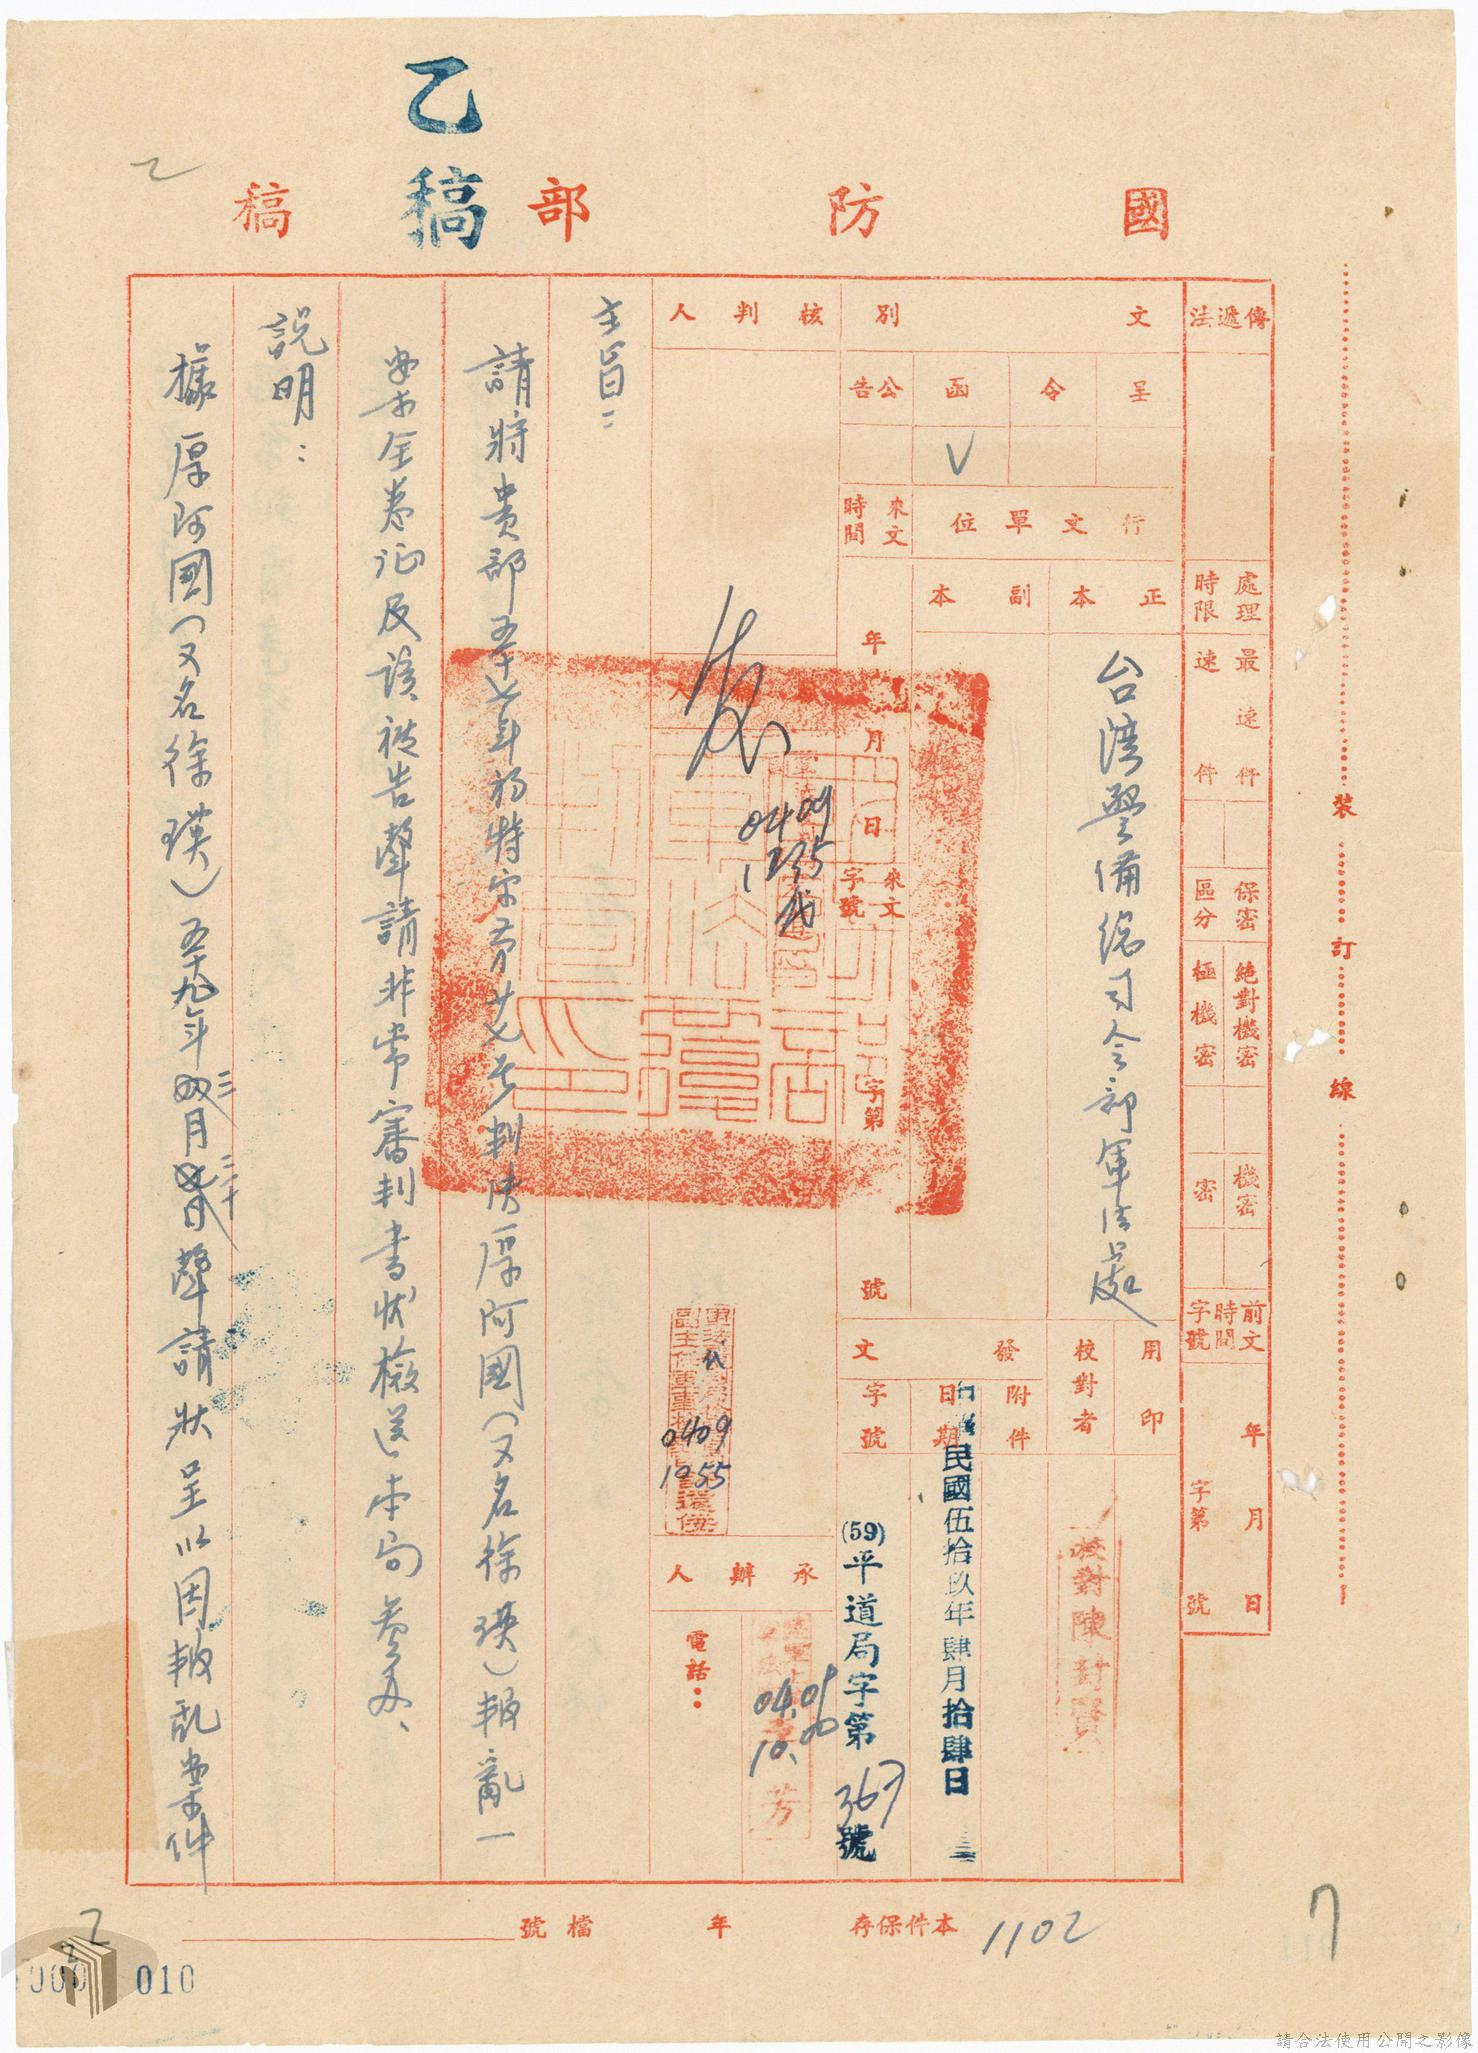 乙稿
乙
國防部稿
傳遞法
處理時限
最速件
速件
保密區分
絕對機密
極機密
機密
密
前文時間字號
年月日
字第號
文別
呈
令
函
公告
V
行文單位
來文時間
正本
副本
台湾警備總司令部軍法處
年月日
來文字號
字第號
用印
校對者
發文
附件
日期
字號
民國伍拾玖年肆月拾肆日
(59)平道局字第367號
核判人
0409
1235
0409
1055
承辦人
電話：
10.00
主旨：
請將貴部五十七年初特字第廿七号判决厚阿國（又名徐瑛）報亂一
案全卷证及該被告聲請非常審判書狀檢送本局参办、
說明：
據厚阿國（又名徐瑛）五十九年三月二十日聲請狀呈以因報乱案件
裝訂線
本件保存年
檔號
1102
7
乙
010
請合法使用公開之影像